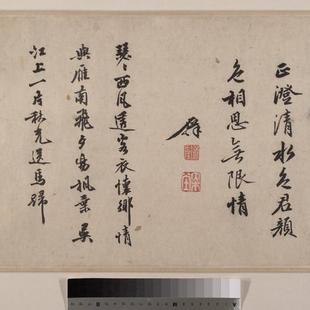 正澄清水色君顏
色相思無限情
瑟〻西風透客衣懷鄉情
與雁南飛夕陽楓葉吳
江上一片秋光送馬歸